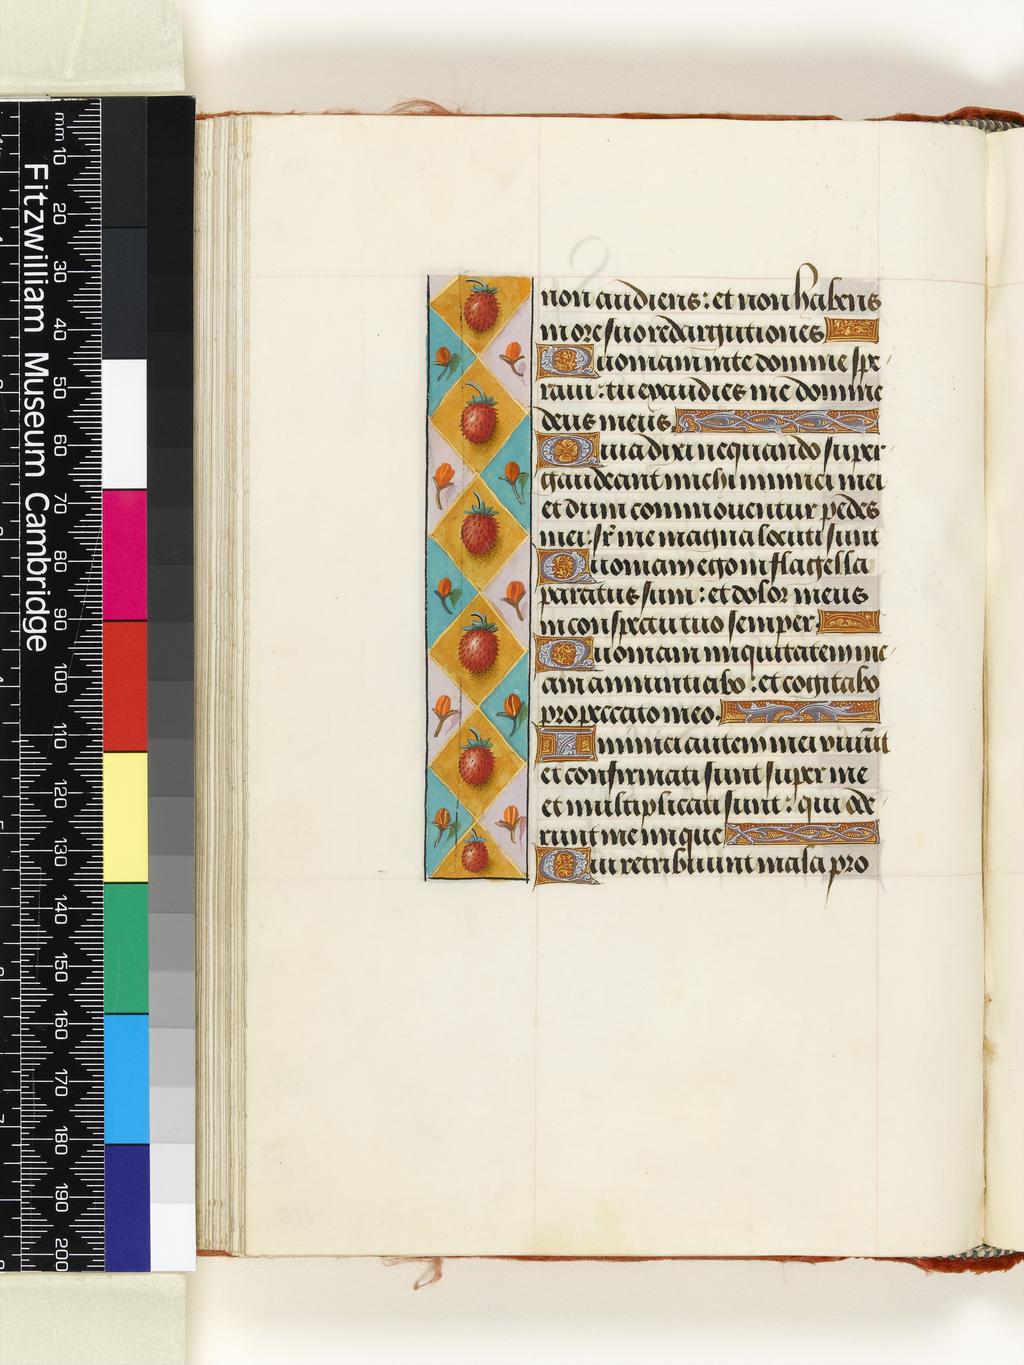 non audiens : et non habens
in ore suo redargutiones
Quoniam in te domine spe
raui : tu exaudies me domine
deus meus.
Quia dixi nequando super
gaudeant michi inimici mei
et dum commouentur pedes
mei : sr̄ me magna locuti sunt
Quoniam ego in flagella
paratus sum : et dolor meus
in conspectu tuo semper.
Quoniam iniquitatem me
am annuntiabo : et cogitabo
pro peccato meo.
Inimici autem mei viuūt
et confirmati sunt super me
et multiplicati sunt : qui ode
runt me inique
Qui retribuunt mala pro
mm 10 20 30 40 50 60 70 80 90 100 110 120 130 140 150 160 170 180 190 200
Fitzwilliam Museum Cambridge